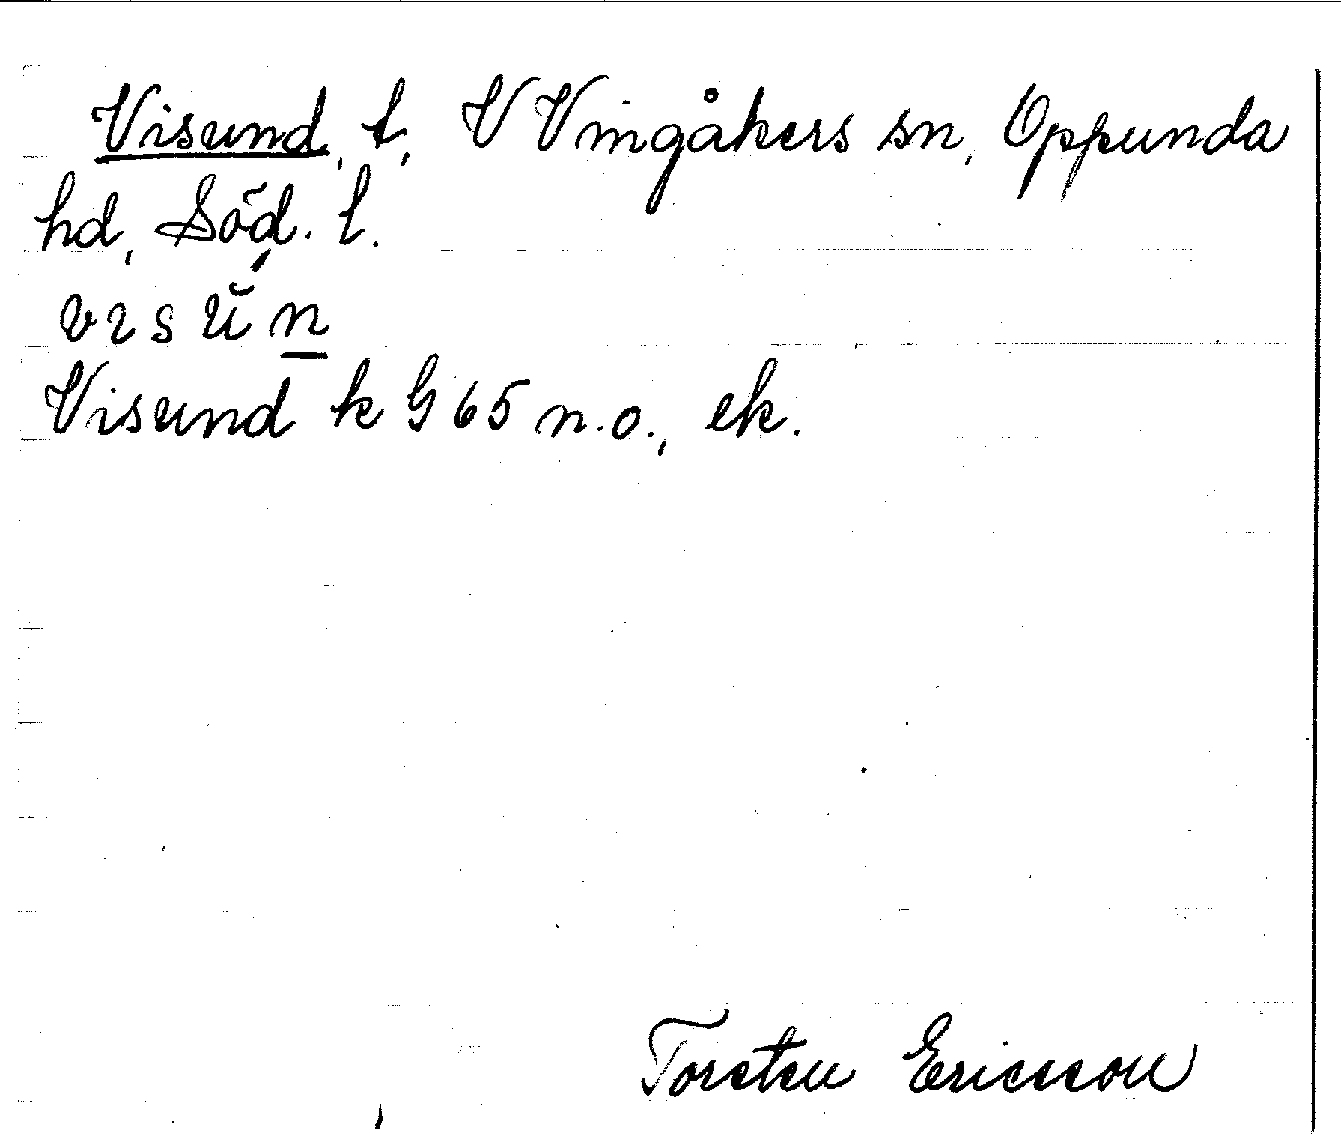 Visund, t, V Vingåkers sn, Oppunda
hd, Söd. l.
visŭ́n
Visund k G 65 n.o., ek.
Torsten Ericsson